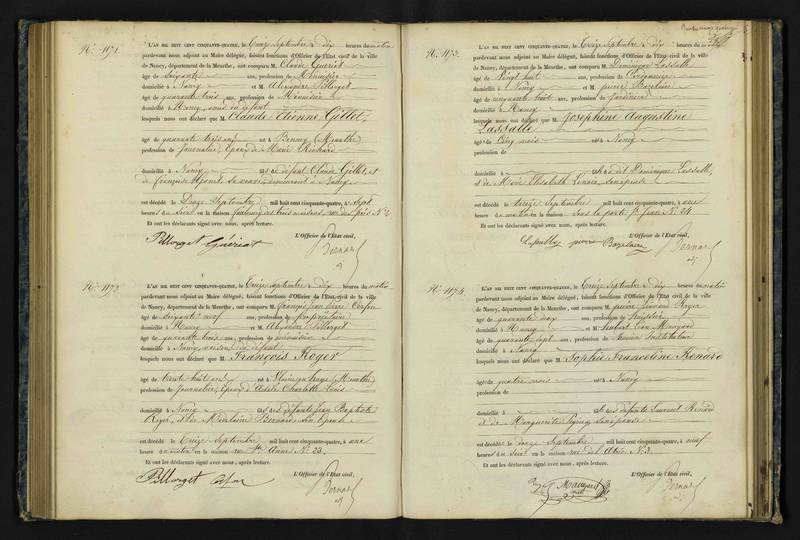 N.º 1171.
L'AN MIL HUIT CENT CINQUANTE-QUATRE, le Treize Septembre à dix heures du matin
pardevant nous adjoint au Maire délégué, faisant fonctions d'Officier de l'État civil de la ville
de Nancy, département de la Meurthe, ont comparu M. Claude Guériot
âgé de soixante ans, profession de Menuisier
domicilié à Nancy et M. Alexandre Pillerget
âgé de quarante trois ans, profession de Menuisier
domicilié à Nancy, du défunt
lesquels nous ont déclaré que M. Claude Etienne Gillet,
âgé de quarante né à (Meurthe)
profession de Journalier, époux de Marie
domicilié à Nancy fils de défunt Claude Gillet, et
de françoise sa veuve demeurant à Nancy
est décédé le Douze Septembre mil huit cent cinquante-quatre, à Sept
heures du Soir en la maison
Et ont les déclarants signé avec nous, après lecture.
L'Officier de l'État civil,
Pillerget Guériot
Bernard
adj
N.º 1172
L'AN MIL HUIT CENT CINQUANTE-QUATRE, le Treize Septembre à dix heures du matin
pardevant nous adjoint au Maire délégué, faisant fonctions d'Officier de l'État civil de la ville
de Nancy, département de la Meurthe, ont comparu M. françois jean pierre
âgé de Soixante neuf ans, profession de propriétaire
domicilié à Nancy et M. Alexandre Pillerget
âgé de quarante trois ans, profession de menuisier
domicilié à Nancy, voisins du défunt
lesquels nous ont déclaré que M. François Roger
âgé de trente huit ans né à (Meurthe)
profession de Journalier, époux d'Adèle Charlotte Louis
domicilié à Nancy fils de défunt Jean Baptiste
Roger, et de Madelaine Bernard, son épouse
est décédé le Treize Septembre mil huit cent cinquante-quatre, à une
heure du matin en la maison rue Ste Anne N.º 23.
Et ont les déclarants signé avec nous, après lecture.
L'Officier de l'État civil,
Pillerget
Bernard
adj
N.º 1173.
L'AN MIL HUIT CENT CINQUANTE-QUATRE, le Treize Septembre à dix heures du matin
pardevant nous adjoint au Maire délégué, faisant fonctions d'Officier de l'État civil de la ville
de Nancy, département de la Meurthe, ont comparu M. Dominique Lassalle
âgé de Vingt huit ans, profession de Cordonnier
domicilié à Nancy et M. pierre Bazelaire
âgé de cinquante huit ans, profession de Jardinier
domicilié à Nancy
lesquels nous ont déclaré que M. Joséphine Augustine
Lassalle
âgé de Cinq mois né à Nancy
profession de
domicilié à fille dudit Dominique Lassalle,
et de Marie Elisabeth
est décédé le treize Septembre mil huit cent cinquante-quatre, à une
heure du matin en la maison hors la porte St Jean N.º 24
Et ont les déclarants signé avec nous, après lecture.
L'Officier de l'État civil,
pierre Bazelaire
Bernard
adj
N.º 1174.
L'AN MIL HUIT CENT CINQUANTE-QUATRE, le Treize Septembre à dix heures du matin
pardevant nous adjoint au Maire délégué, faisant fonctions d'Officier de l'État civil de la ville
de Nancy, département de la Meurthe, ont comparu M. pierre Roger
âgé de quarante deux ans, profession de
domicilié à Nancy et M. Léon Maugard
âgé de quarante sept ans, profession de Instituteur
domicilié à Nancy
lesquels nous ont déclaré que M. Sophie Franceline Renard
âgé de quatre mois né à Nancy
profession de
domicilié à fille de défunt Laurent Renard
et de Marguerite
est décédé le douze Septembre mil huit cent cinquante-quatre, à neuf
heures du Soir en la maison N.º 3.
Et ont les déclarants signé avec nous, après lecture.
L'Officier de l'État civil,
Maugard
Bernard
adj